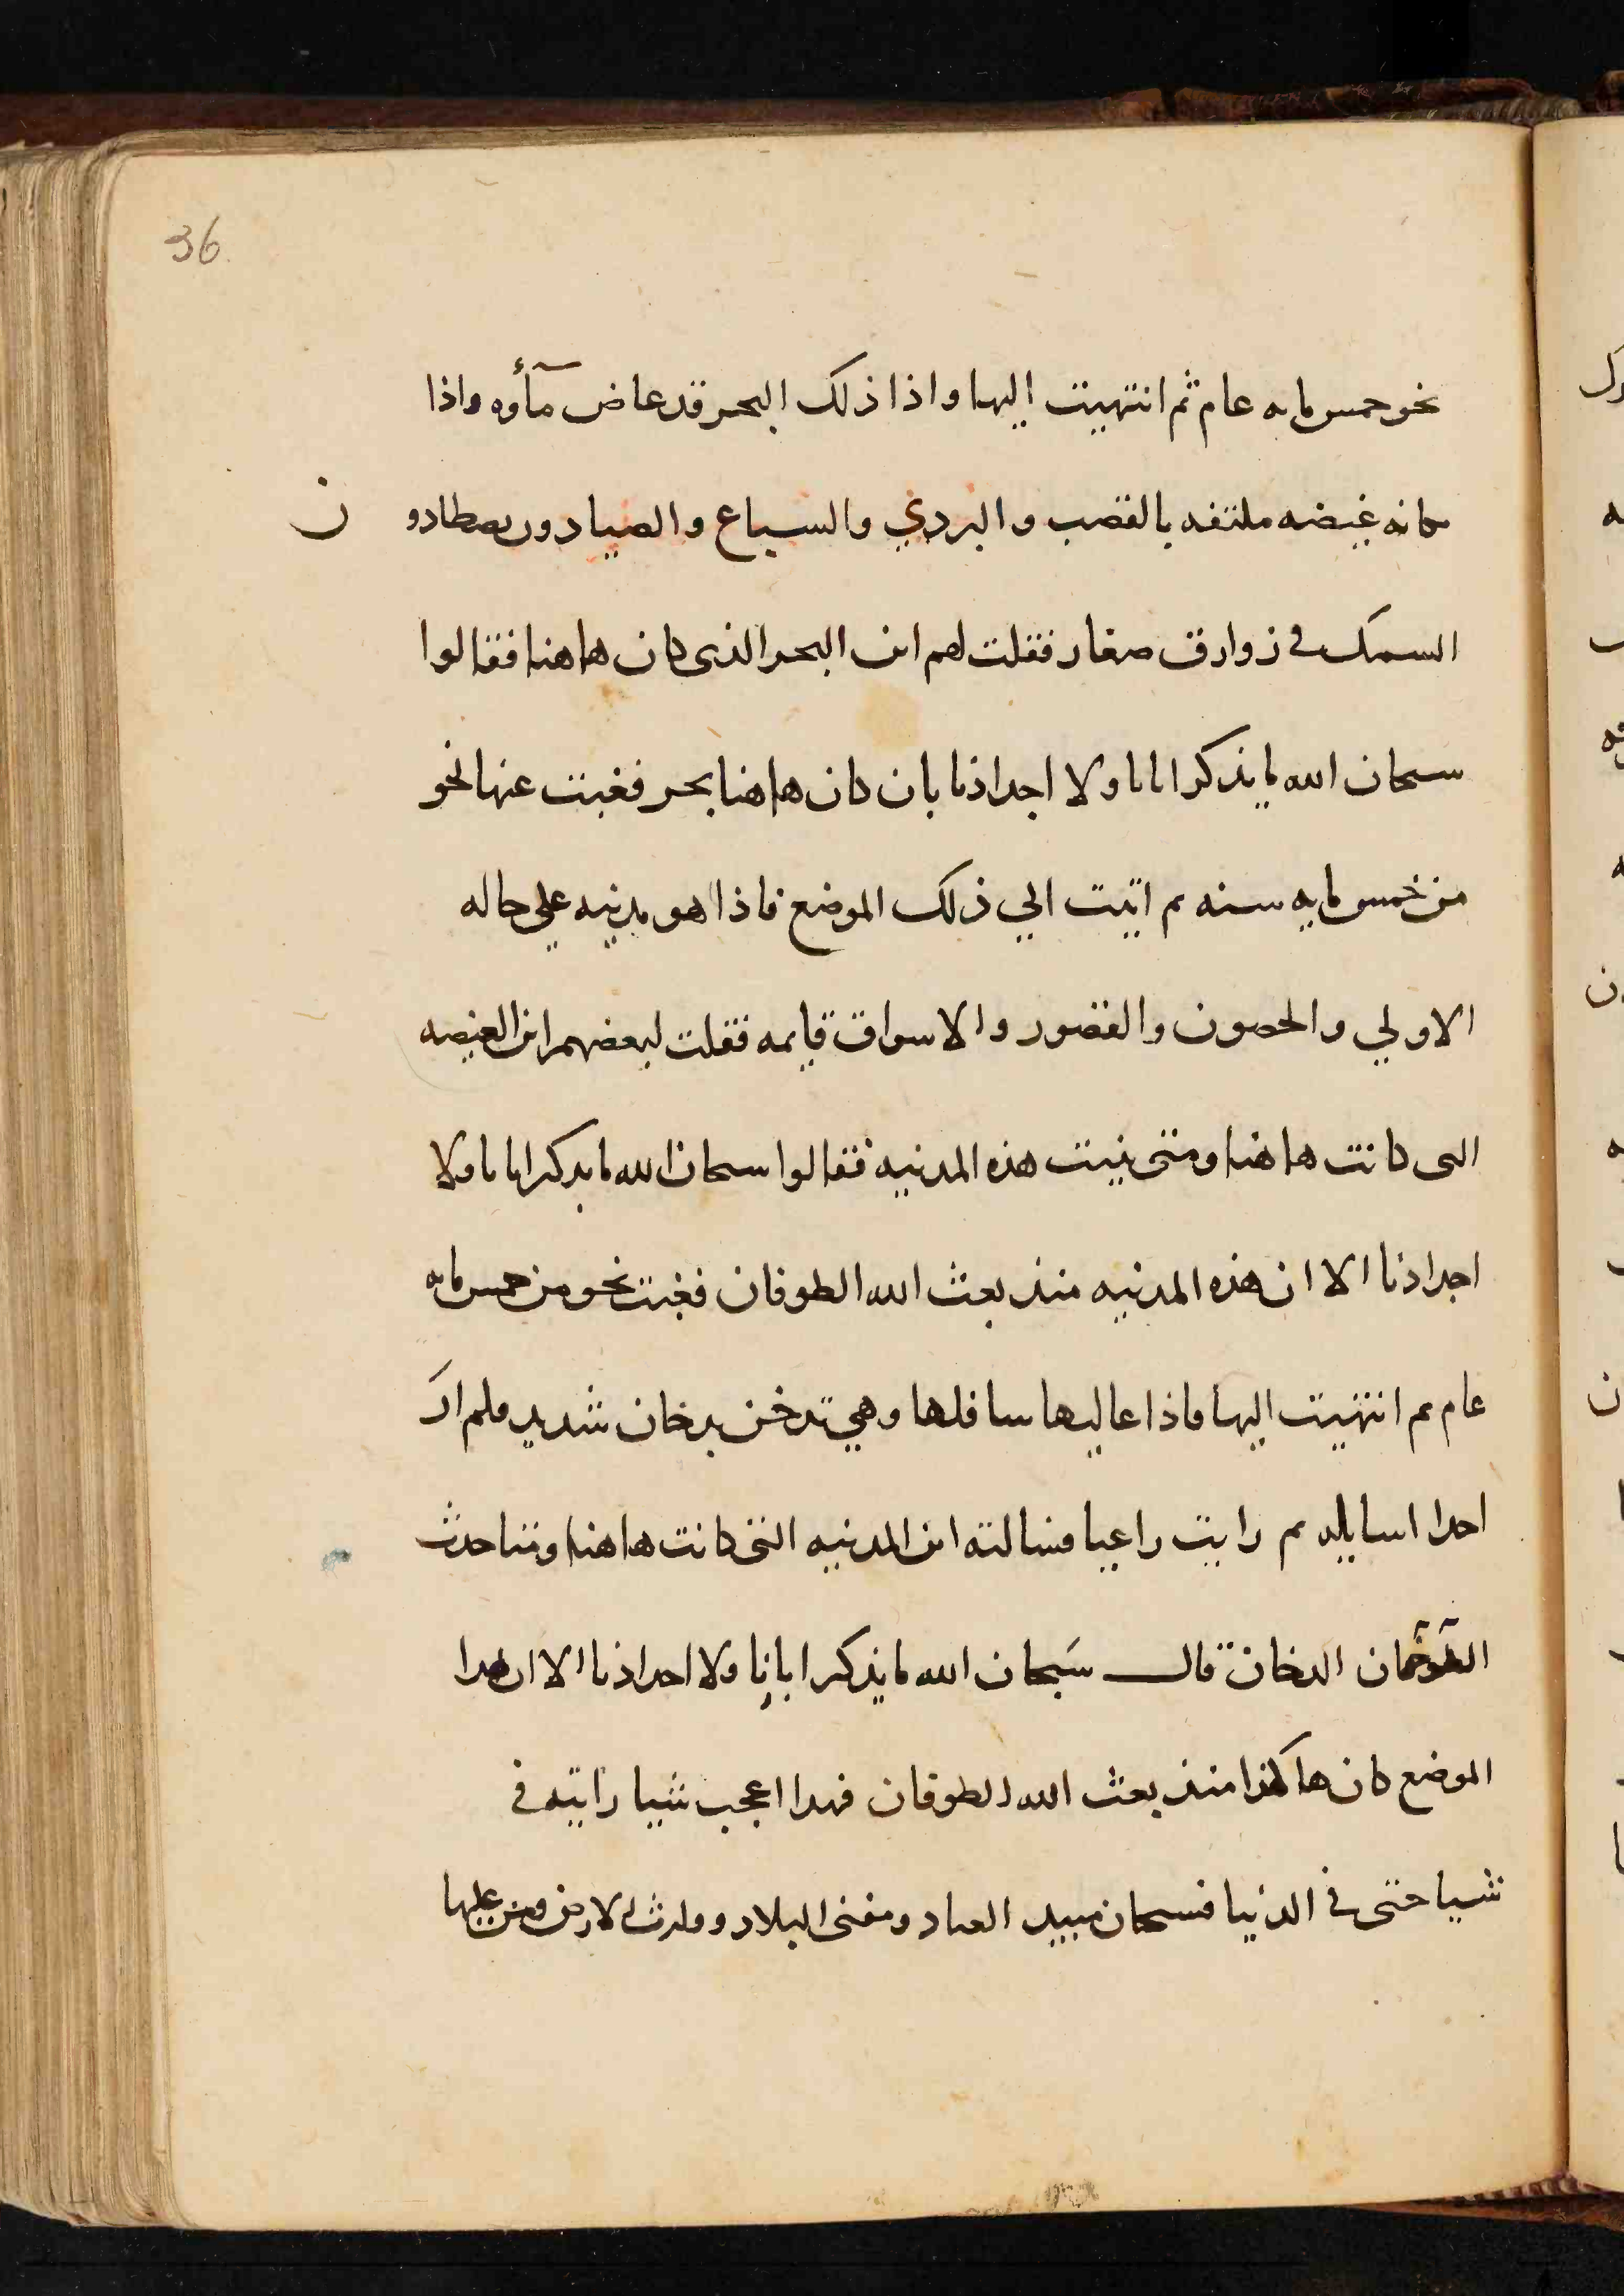 36
نحو خمس مايه عام ثم انتهيت اليها واذا ذلك البحر قد غاض مآؤه واذا
مكانه غيضه ملتفه بالقصب والبردي والسباع والصيادون يصطادو ن
السمك في زوارق صغار فقلت لهم اين البحر الذى كان هاهنا فقالوا
سبحان الله ما يذكر ابانا ولا اجدادنا بان كان هاهنا بحر فغبت عنها نحو
من خمس مايه سنه ثم اتيت الي ذلك الموضع فاذا هو مدينه علي حاله
الاولي والحصون والقصور والاسواق قايمه فقلت لبعضهم اين الغيضه
التى كانت هاهنا ومتى بنيت هذه المدينه فقالوا سبحان الله ما يذكر ابانا ولا
اجدادنا الا ان هذه المدينه منذ بعث الله الطوفان فغبت نحو من خمس مايه
عام ثم انتهيت اليها فاذا عاليها سافلها وهي تدخن بدخان شديد فلم ار
احدا اسايله ثم رايت راعيا فسالته اين المدينه التى كانت هاهنا ومتا حدث
الدخان قال سبحان الله ما يذكر ابانا ولا اجدادنا الا ان هدا
الموضع كان هاكذا منذ بعث الله الطوفان فهدا اعجب شيا رايته في
شياحتى في الدنيا فسبحان مبيد العباد ومفنى البلاد ووارث الارض ومن عليها